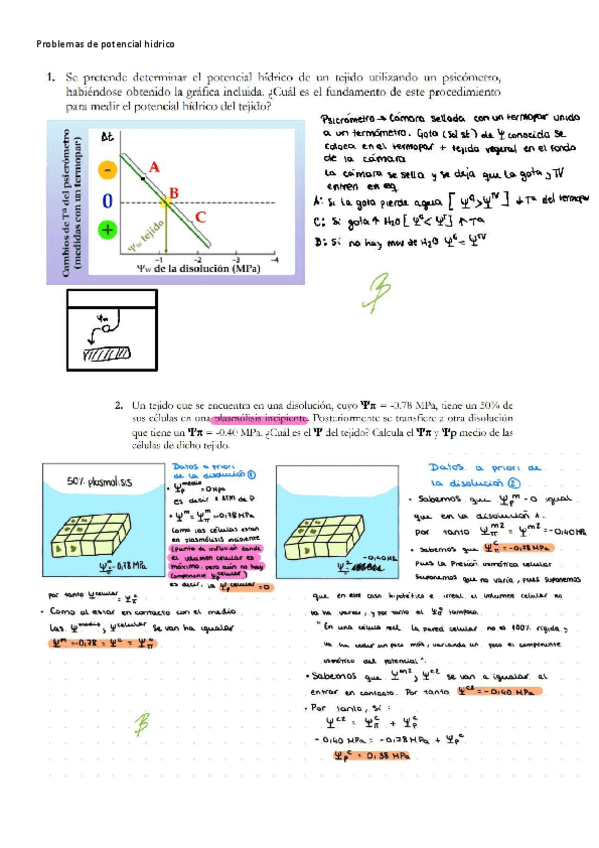 Problemas de potencial hídrico
1. Se pretende determinar el potencial hídrico de un tejido utilizando un psicómetro,
habiéndose obtenido la gráfica incluida. ¿Cuál es el fundamento de este procedimiento
para medir el potencial hídrico del tejido?
Cambios de Tª del psicrómetro
(medidas con un termopar)
Δt
-
0
+
A
B
C
Ψw tejido
-1 -2 -3 -4
Ψw de la disolución (MPa)
Psicrómetro → Cámara sellada con un termopar unido
a un termómetro. Gota (sol st) de Ψ conocida se
coloca en el termopar + tejido vegetal en el fondo
de la cámara
La cámara se sella y se deja que la gota y TV
entren en eq.
A: Si la gota pierde agua [ΨG > ΨTV] ↓ Tª del termopar
C: Si gota ↑ H2O [ΨG < ΨT] ↑ Tª
B: Si no hay mov de H2O ΨG = ΨTV
2. Un tejido que se encuentra en una disolución, cuyo Ψπ = -0.78 MPa, tiene un 50% de
sus células en una plasmólisis incipiente. Posteriormente se transfiere a otra disolución
que tiene un Ψπ = -0.40 MPa. ¿Cuál es el Ψ del tejido? Calcula el Ψπ y Ψp medio de las
células de dicho tejido.
50% plasmolisis
Datos a priori
de la disolución ①
• Ψp medio = 0 MPa
es decir 1 ATM de P
• Ψm = Ψπm = -0,78 MPa
Como las células están
en plasmólisis incipiente
(punto de inflexión donde
el volumen celular es
máximo, pero aún no hay
componente Ψ celular)
es decir, la Ψp celular = 0
por tanto Ψcelular = Ψπc
• Como al estar en contacto con el medio
las Ψmedio, Ψcelular se van ha igualar
Ψm = -0,78 = Ψc = Ψπc
-0,40
Datos a priori de
la disolución ②
• Sabemos que Ψpm = 0 igual
que en la disolución 1.
Por tanto Ψπm2 = Ψm2 = -0,40 MPa
• Sabemos que Ψπc = -0,78 MPa
Pues la Presión osmótica celular
suponemos que no varía, pues suponemos
que en este caso hipotético e irreal el volumen celular no
va ha variar, y por tanto el Ψπc tampoco.
"En una célula real la pared celular no es 100% rígida y
va ha ceder un poco más, variando un poco el componente
osmótico del potencial".
• Sabemos que Ψm2 y Ψc2 se van a igualar al
entrar en contacto. Por tanto Ψc2 = -0,40 MPa
• Por tanto, Si:
Ψc2 = Ψπc + Ψpc
-0,40 MPa = -0,78 MPa + Ψp
Ψpc = 0,38 MPa